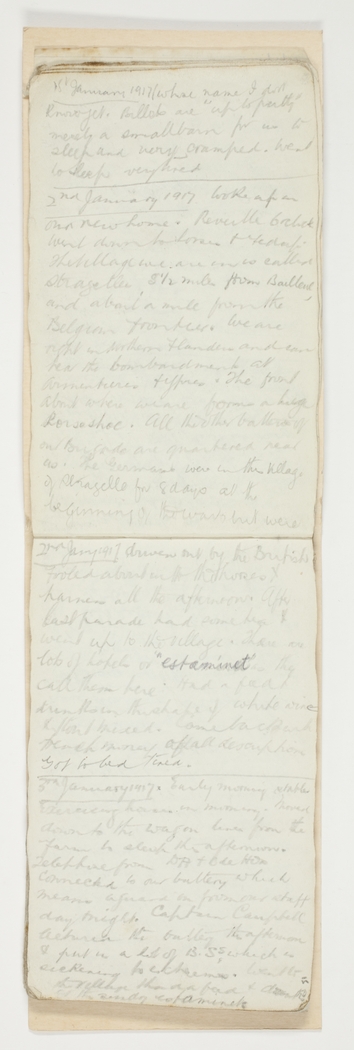 1st January 1917 (whose name I don't
know yet. Billets are "up to putty"
merely a small barn for us to
sleep and very cramped. Went
to sleep very tired
2nd January 1917 Woke up in
our new home. Reveille 6 o'clock
Went down to horses &
The village we are in is called
Strazelle, 3½ miles from Bailleul
and about a mile from the
Belgian Frontier. We are
right in northern Flanders and can
hear the bombardment at
Armentieres & Ypres. The front
about where we are forms a huge
Horseshoe. All the other batteries of
our Brigade are quartered near
us. The Germans were in this village
of Strazelle for 8 days at the
beginning of the war but were
2nd Jany 1917 driven out by the British
footed about with the horses &
harness all the afternoon. After
last parade had some tea &
went up to the village. There are
lots of hotels or "estaminet" as they
call them here. Had a few
drinks in the shape of white wine
&
of all description
Got to bed tired.
3rd January 1917. Early morning stables
& exercising horses in morning. Moved
down to the wagon lines from the
farm to sleep this afternoon.
Telephone from
connected to our battery which
means a guard on from our staff
day & night. Captain Campbell
lectured the battery this afternoon
& put in a lot of B.S. which is
sickening to listen to. Went to
the village & had a feed & drinks
at the estaminets